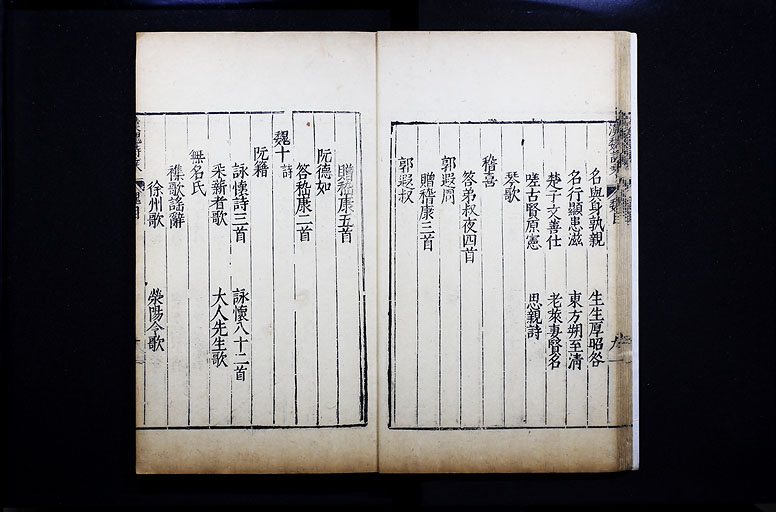 名與身孰親　生生厚招咎
名行顯患滋　東方朔至清
楚子文善仕　老萊妻賢名
嗟古賢原憲　思親詩
琴歌
嵇喜
答弟叔夜四首
郭遐周
贈嵇康三首
郭遐叔
贈嵇康五首
阮德如
答嵇康二首
魏十 詩
阮籍
詠懷詩三首　詠懷八十二首
采薪者歌　大人先生歌
無名氏
襍歌謠辭
徐州歌　滎陽令歌